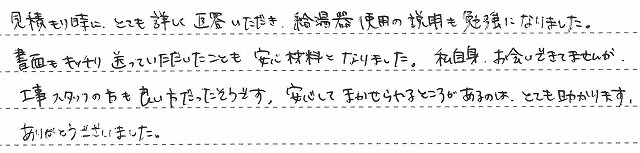 見積もり時に、とても詳しく回答いただき、給湯器使用の説明も勉強になりました。
書面もキッチリ送っていただいたことも安心材料となりました。私自身、お会いできてませんが、
工事スタッフの方も良い方だったそうです。安心してまかせられるところがあるのは、とても助かります。
ありがとうございました。